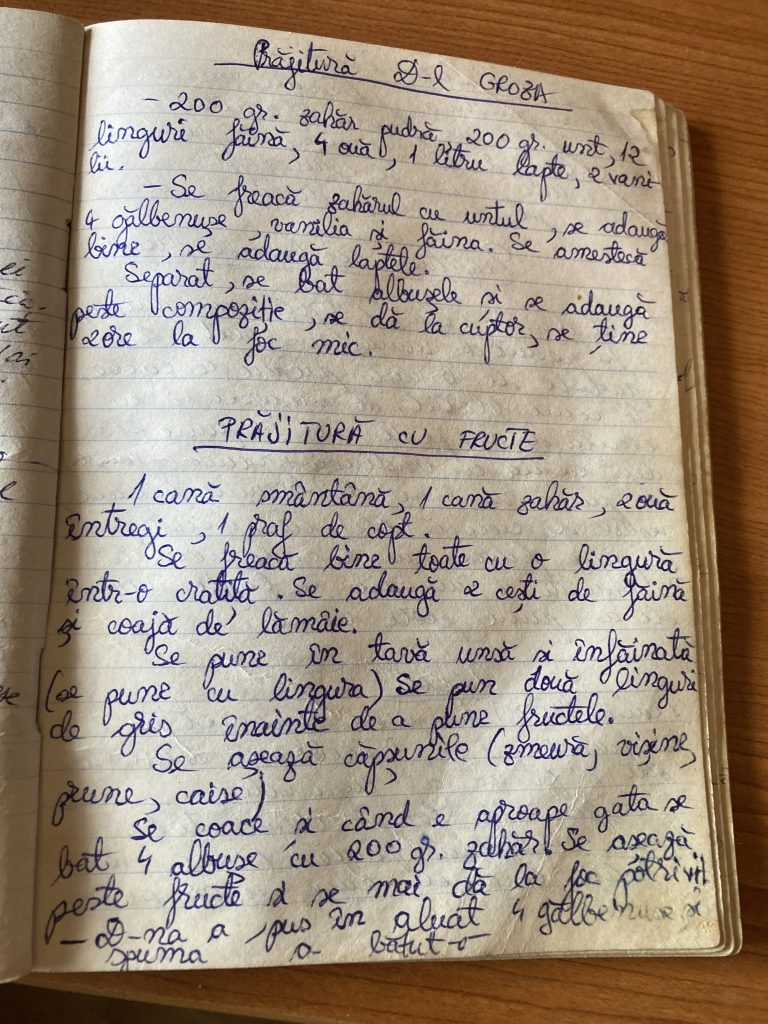 Prăjitură D-l GROZA
- 200 gr. zahăr pudră, 200 gr. unt, 12
linguri făină, 4 ouă, 1 litru lapte, 2 vani-
lii.
- Se freacă zahărul cu untul, se adaugă
4 gălbenușe, vanilia și făina. Se amestecă
bine, se adaugă laptele.
Separat, se bat albușele și se adaugă
peste compoziție, se dă la cuptor, se ține
2 ore la foc mic.
PRĂJITURĂ CU FRUCTE
1 cană smântână, 1 cană zahăr, 2 ouă
întregi, 1 praf de copt.
Se freacă bine toate cu o lingură
într-o cratiță. Se adaugă 2 cești de făină
și coajă de lămâie.
Se pune în tavă unsă și înfăinată
(se pune cu lingura) Se pun două linguri
de gris înainte de a pune fructele.
Se așează căpșunile (zmeură, vișine,
prune, caise)
Se coace și când e aproape gata se
bat 4 albușe cu 200 gr. zahăr. Se așează
peste fructe și se mai dă la foc potrivit
- D-na a pus în aluat 4 gălbenușe și
spuma a bătut-o
ei
ut